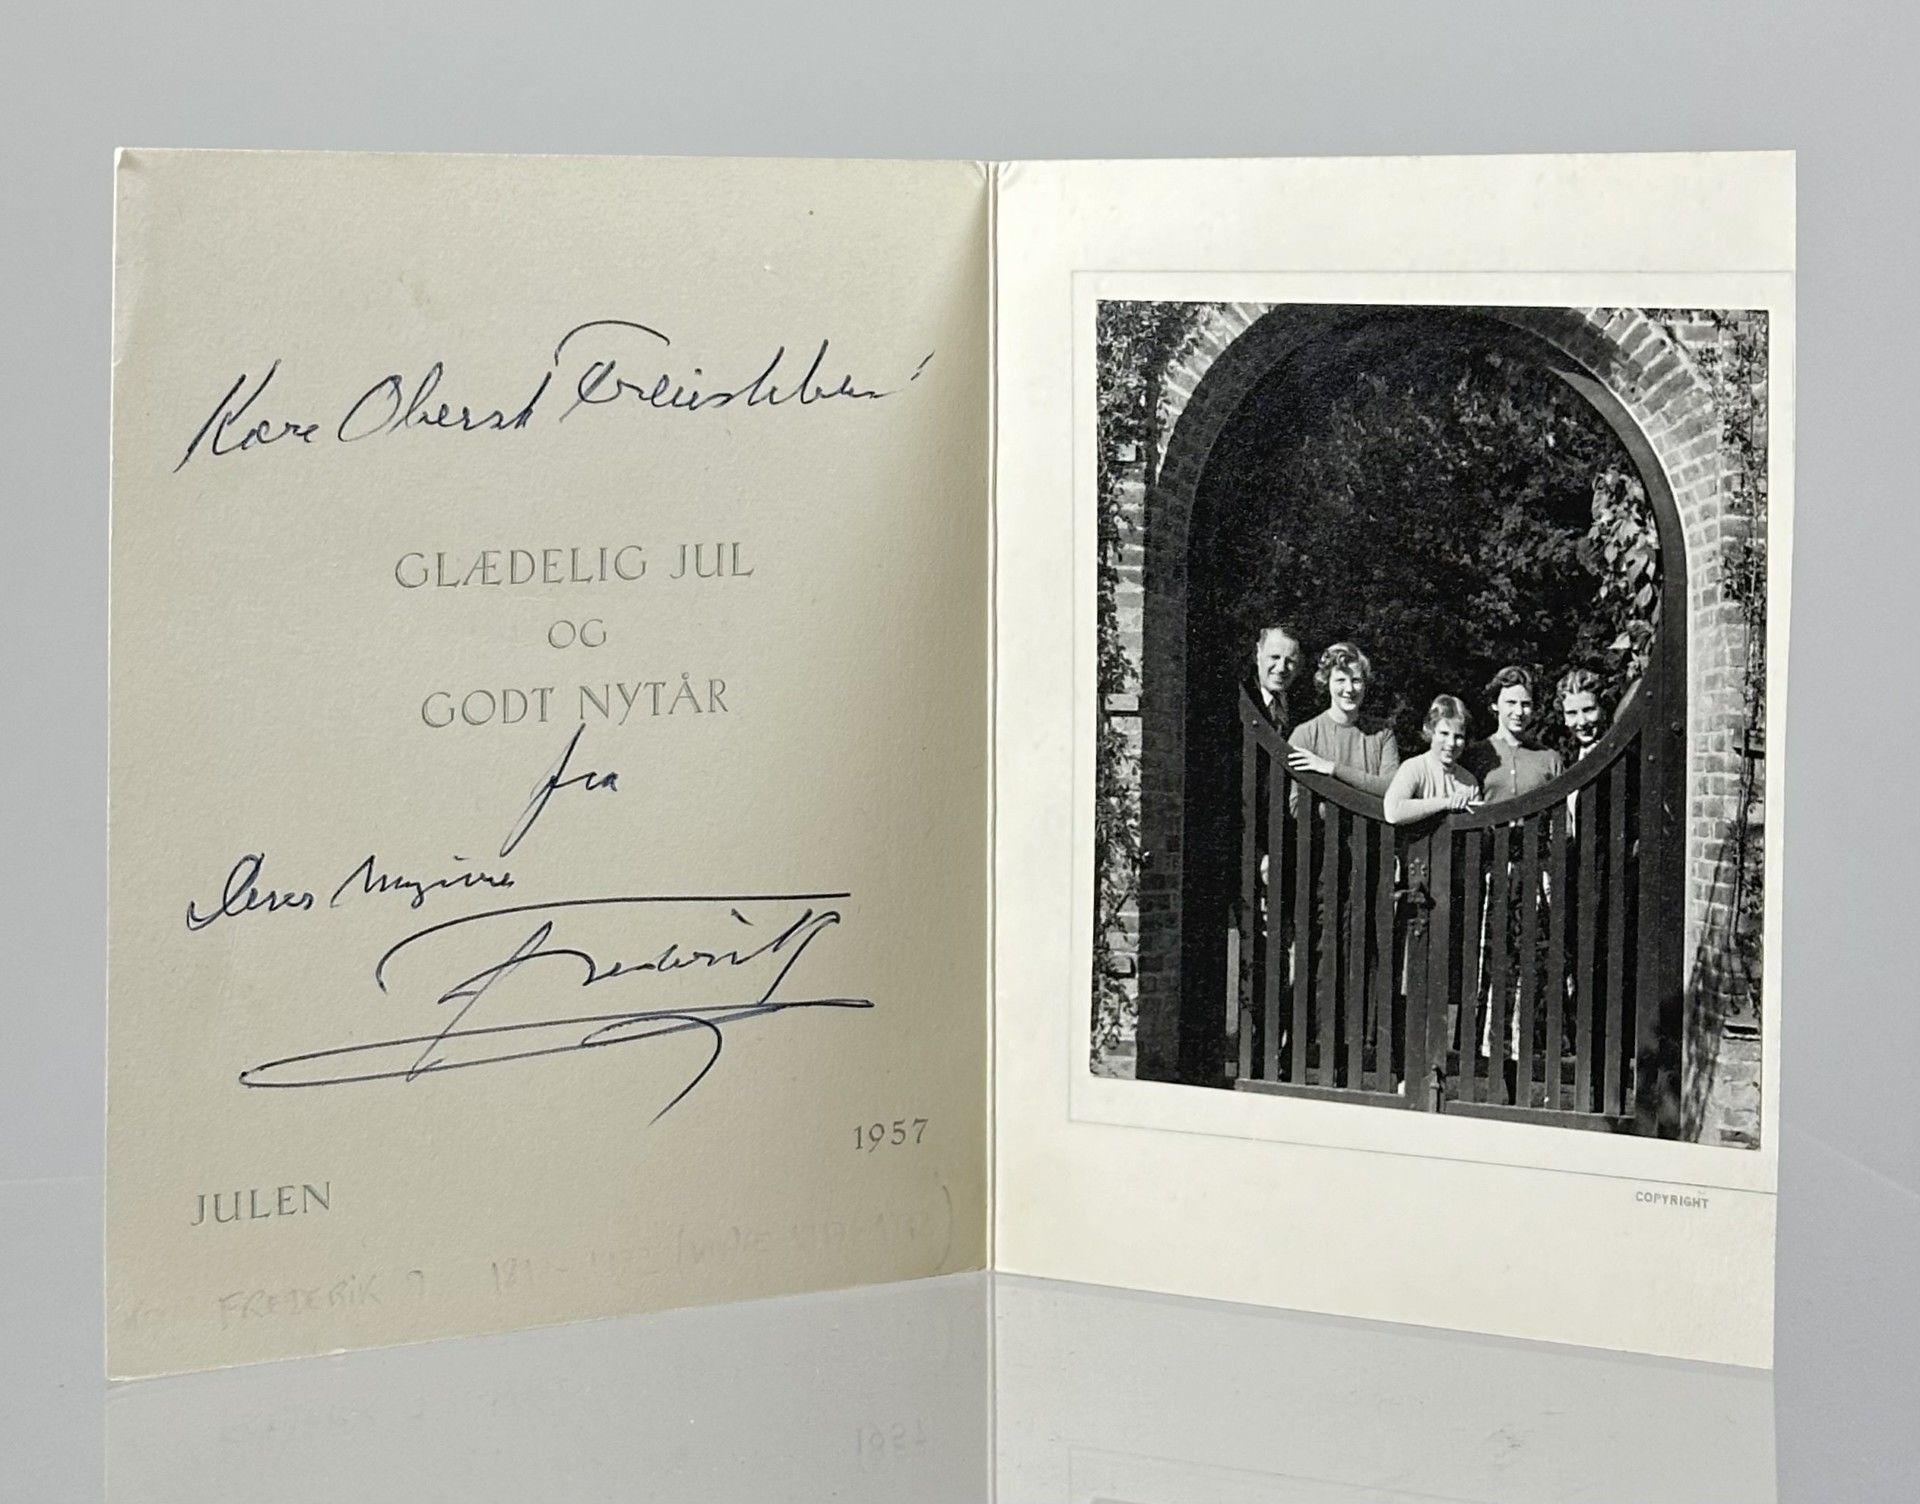 Kære Oberst
GLÆDELIG JUL
OG
GODT NYTÅR
fra
Deres
Frederik R
1957
JULEN
FREDERIK 9
COPYRIGHT